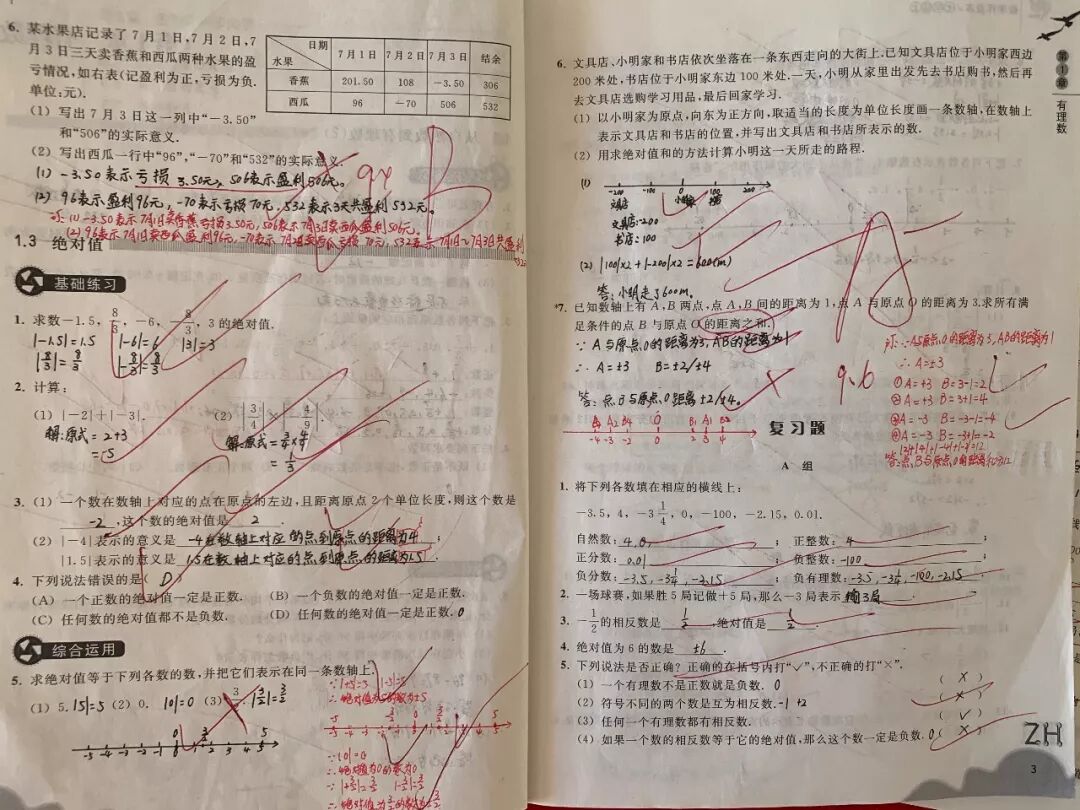 6. 某水果店记录了7月1日,7月2日,7
月3日三天卖香蕉和西瓜两种水果的盈
亏情况,如右表(记盈利为正,亏损为负.
单位:元).
日期 水果 7月1日 7月2日 7月3日 结余
香蕉 201.50 108 -3.50 306
西瓜 96 -70 506 532
(1) 写出7月3日这一列中“-3.50”
和“506”的实际意义.
(2) 写出西瓜一行中“96”,“-70”和“532”的实际意义.
(1) -3.50表示亏损3.50元,506表示盈利506元。
(2) 96表示盈利96元,-70表示亏损70元,532表示3天共盈利532元。
94 B
1.3 绝对值
基础练习
1. 求数-1.5, 8/3, -6, -8/3, 3的绝对值.
|-1.5|=1.5 |-6|=6 |3|=3
|8/3|=8/3 |-8/3|=8/3
2. 计算:
(1) |-2|+|-3|. (2) |3/4|×|-4/9|
解:原式=2+3 解:原式=3/4×4/9
=5 =1/3
3. (1) 一个数在数轴上对应的点在原点的左边,且距离原点2个单位长度,则这个数是
-2,这个数的绝对值是 2 .
(2) |-4|表示的意义是 -4在数轴上对应的点到原点的距离为4 ;
|1.5|表示的意义是 1.5在数轴上对应的点到原点的距离为1.5 .
4. 下列说法错误的是( D )
(A) 一个正数的绝对值一定是正数. (B) 一个负数的绝对值一定是正数.
(C) 任何数的绝对值都不是负数. (D) 任何数的绝对值一定是正数. 0
综合运用
5. 求绝对值等于下列各数的数,并把它们表示在同一条数轴上.
(1) 5. |5|=5 (2) 0. |0|=0 (3) 3/2. |3/2|=3/2
-5 -4 -3 -2 -1 0 1 2 3 4 5
∵|0|=0
∴绝对值为0的数为0
第1章 有理数
6. 文具店、小明家和书店依次坐落在一条东西走向的大街上.已知文具店位于小明家西边
200米处,书店位于小明家东边100米处.一天,小明从家里出发先去书店购书,然后再
去文具店选购学习用品,最后回家学习.
(1) 以小明家为原点,向东为正方向,取适当的长度为单位长度画一条数轴,在数轴上
表示文具店和书店的位置,并写出文具店和书店所表示的数.
(2) 用求绝对值和的方法计算小明这一天所走的路程.
(1) -200 -100 0 100 200
文具店 小明家 书店
文具店:-200
书店:100
(2) |100|×2+|-200|×2=600(m)
答:小明走了600m。
A
*7. 已知数轴上有A,B两点,点A,B间的距离为1,点A与原点O的距离为3.求所有满
足条件的点B与原点O的距离之和.
∵A与原点O的距离为3,AB的距离为1
∴A=±3 B=±2/±4
答:点B与原点O距离±2/±4。
9.6
∵A与原点O的距离为3,AB的距离为1
∴A=±3
①A=+3 B=3-1=2
②A=+3 B=3+1=4
③A=-3 B=-3-1=-4
④A=-3 B=-3+1=-2
-4 -3 -2 0 2 3 4
复习题
A 组
1. 将下列各数填在相应的横线上:
-3.5, 4, -3 1/4, 0, -100, -2.15, 0.01.
自然数: 4,0 ; 正整数: 4 ;
正分数: 0.01 ; 负整数: -100 ;
负分数: -3.5, -3 1/4, -2.15 ; 负有理数: -3.5, -3 1/4, -100, -2.15 .
2. 一场球赛,如果胜5局记做+5局,那么-3局表示 输3局 .
3. -1/2的相反数是 1/2 ,绝对值是 1/2 .
4. 绝对值为6的数是 ±6 .
5. 下列说法是否正确?正确的在括号内打“√”,不正确的打“×”.
(1) 一个有理数不是正数就是负数. 0 ( × )
(2) 符号不同的两个数是互为相反数. -1 +2 ( × )
(3) 任何一个有理数都有相反数. ( √ )
(4) 如果一个数的相反数等于它的绝对值,那么这个数一定是负数. 0 ( × )
ZH
3